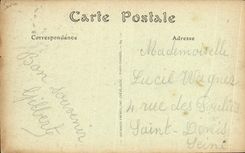 Carte Postale
Correspondance
Adresse
Bon souvenir
Gilberte
Mademoiselle
Lucil Wagner
4 rue des
Saint-Denis
Seine